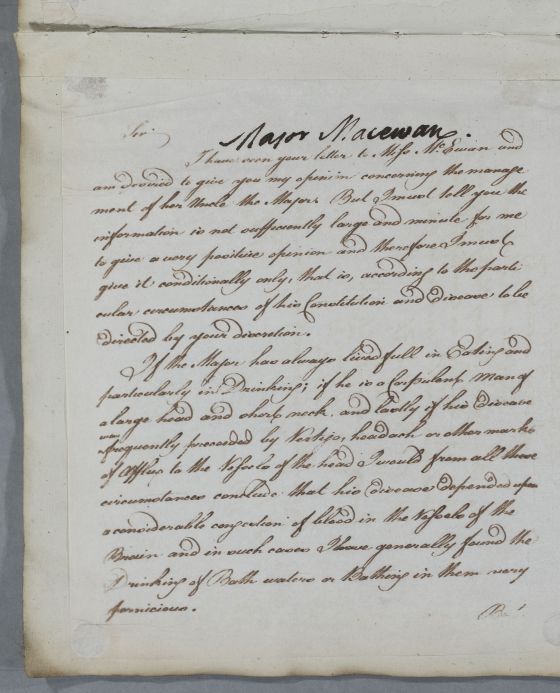 Major Macewan.
Sir
I have seen your letter to Miss McEwan and
am desired to give you my opinion concerning the manage
ment of her Uncle the Major. But I must tell you the
information is not sufficiently large and minute for me
to give a very positive opinion and therefore I must
give it conditionally only, that is, according to the parti
cular circumstances of his Constitution and disease to be
directed by your discretion.
If the Major has always lived full in Eating and
particularly in Drinking; if he is a Corpulent Man of
a large head and short neck, and lastly if his disease
was
frequently preceded by Vertigo, headach or other marks
of Afflux to the Vessels of the head I would from all these
circumstances conclude that his disease depended upon
a considerable congestion of blood in the Vessels of the
Brain and in such cases I have generally found the
Drinking of Bath waters or Bathing in them very
pernicious.